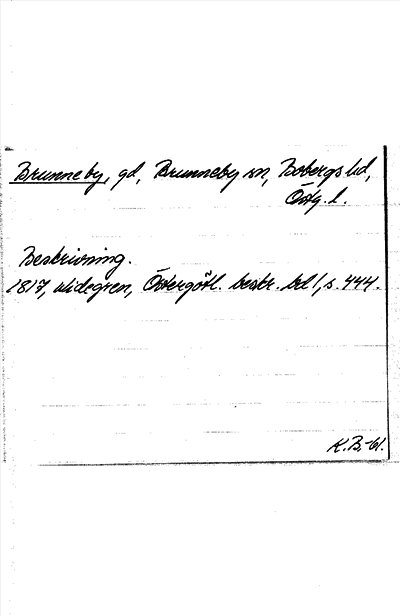 Brunneby, gd, Brunneby sn, Bobergs hd,
Östg. l.
Beskrivning.
1817, Widegren, Östergötl. beskr. bd 1, s. 444.
K.B.-61.